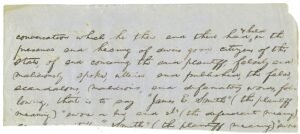 conversation which he then and there had, in the
presence and hearing of divers good citizens of this
State of and concerning the said plaintiff falsely and
maliciously spoke, utter and published the false,
scandalous, malicious, and defamatory words, fol-
lowing, that is to say "James E Smith" (the plaintiff
meaning) "swore a lie and I" (the defendant meaning)
Smith" (the plaintiff meaning) swore